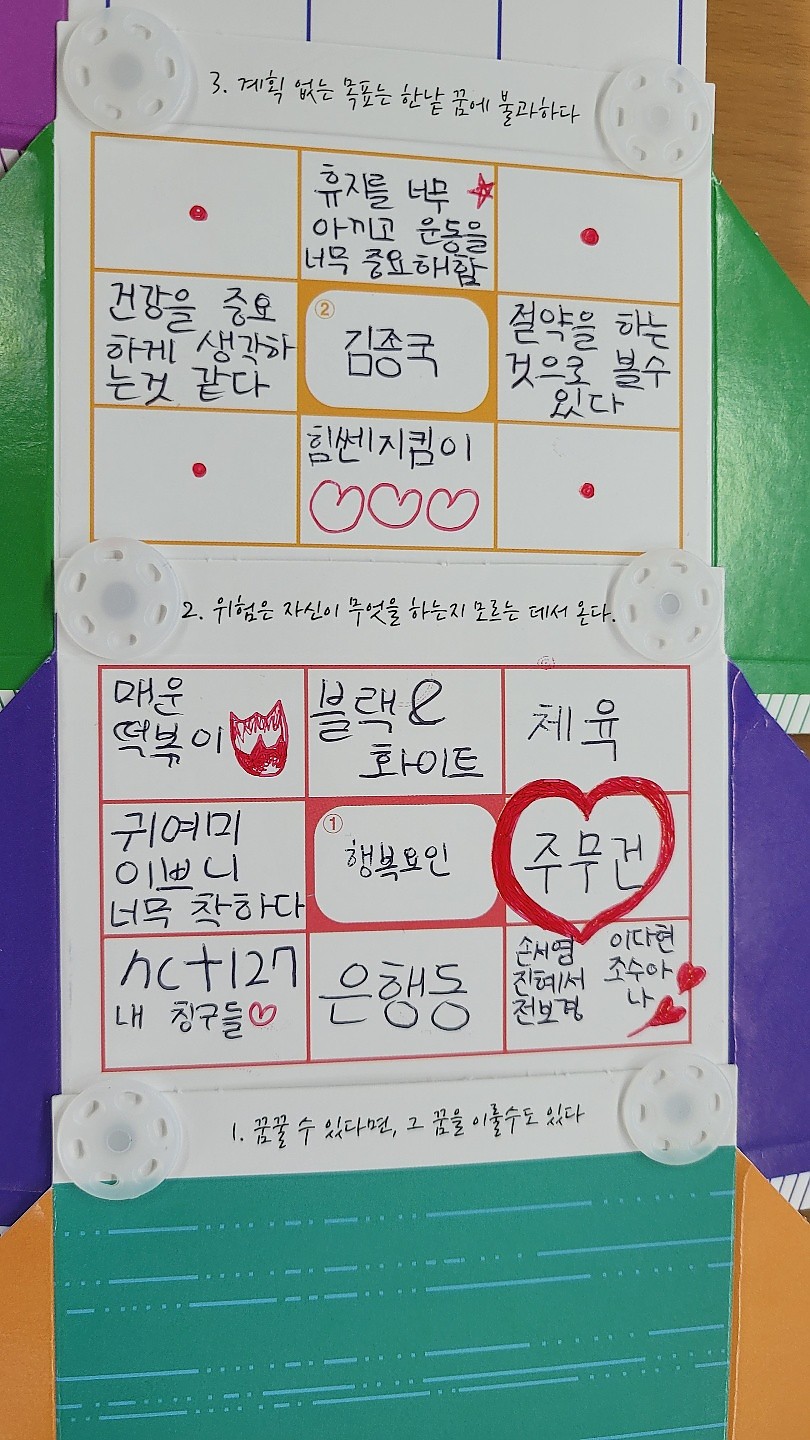 3. 계획 없는 목표는 한낱 꿈에 불과하다
휴지를 너무
아끼고 운동을
너무 중요해함
건강을 중요
하게 생각하
는것 같다
②
김종국
절약을 하는
것으로 볼수
있다
힘쎈지킴이
2. 위험은 자신이 무엇을 하는지 모르는 데서 온다.
매운
떡볶이
블랙e
화이트
체육
귀여미
이쁘니
너무 착하다
①
행복요인
주무건
nct127
내 칭구들
은행동
손서영
진혜서
전보경
이다현
조수아
나
1. 꿈꿀 수 있다면, 그 꿈을 이룰수도 있다